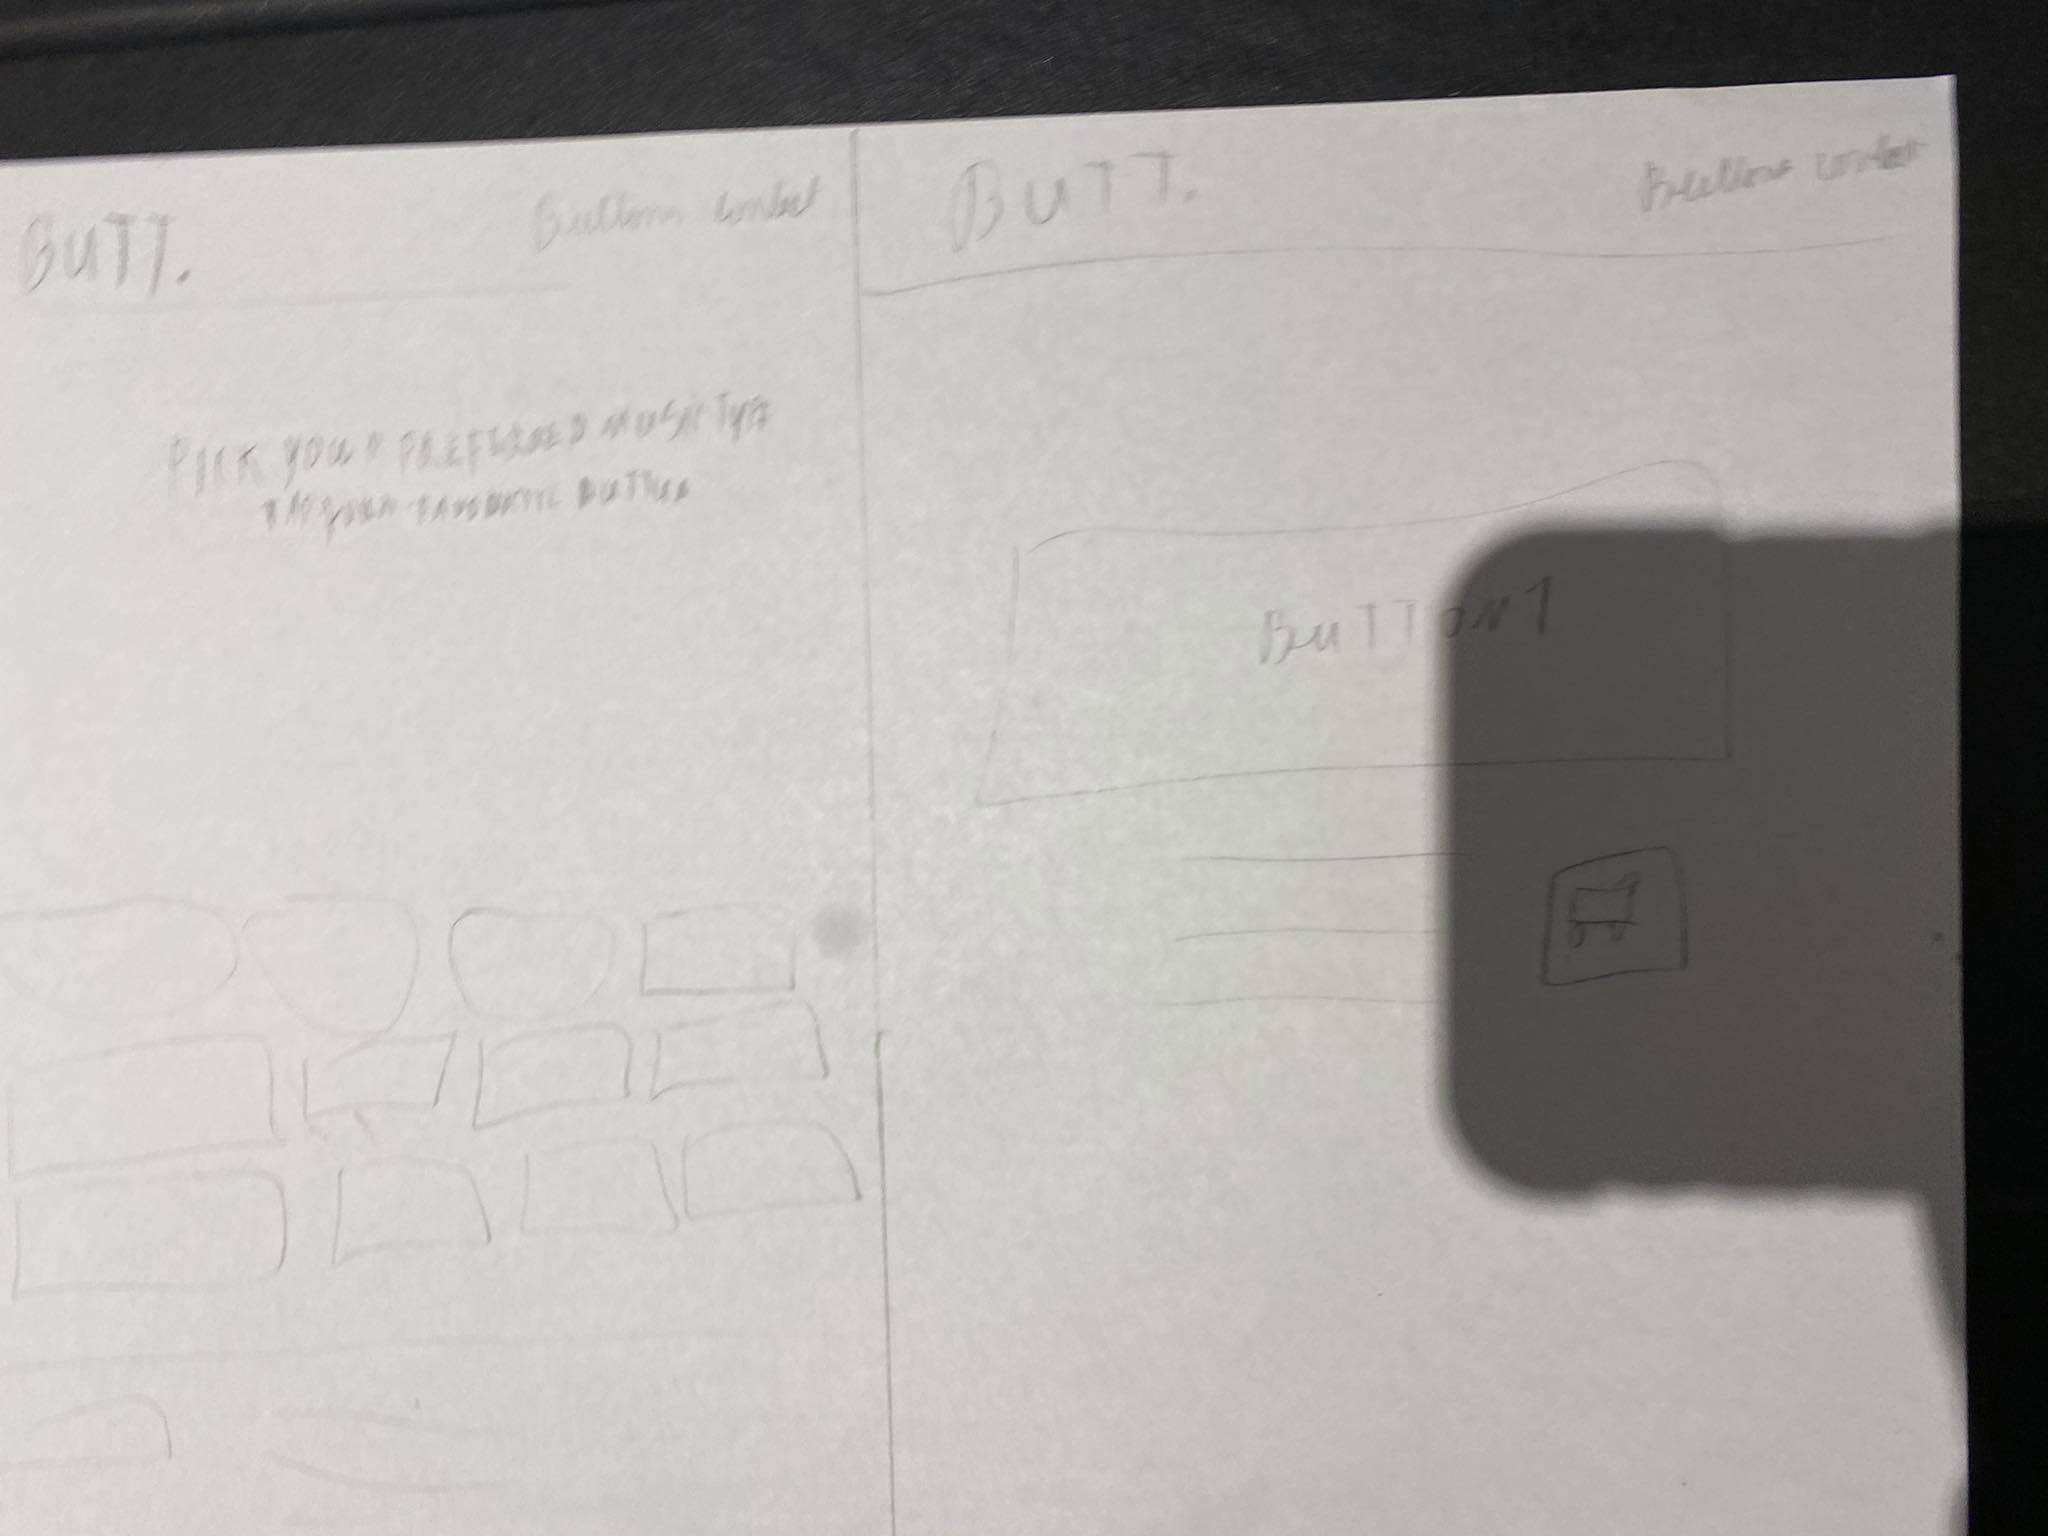 BUTT.
Buttons contact
PICK YOUR PREFERRED MUSIC TYPE
TAP YOUR FAVOURITE BUTTON
BUTT.
Buttons contact
BUTTON 1